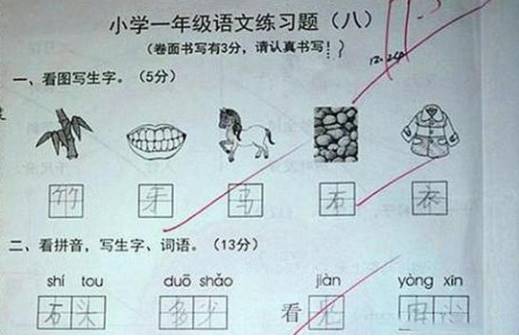 小学一年级语文练习题（八）
（卷面书写有3分，请认真书写！）
一、看图写生字。（5分）
竹 牙 马 石 衣
二、看拼音，写生字、词语。（13分）
shí tou duō shǎo jiàn yòng xīn
石头 多少 看见 用心